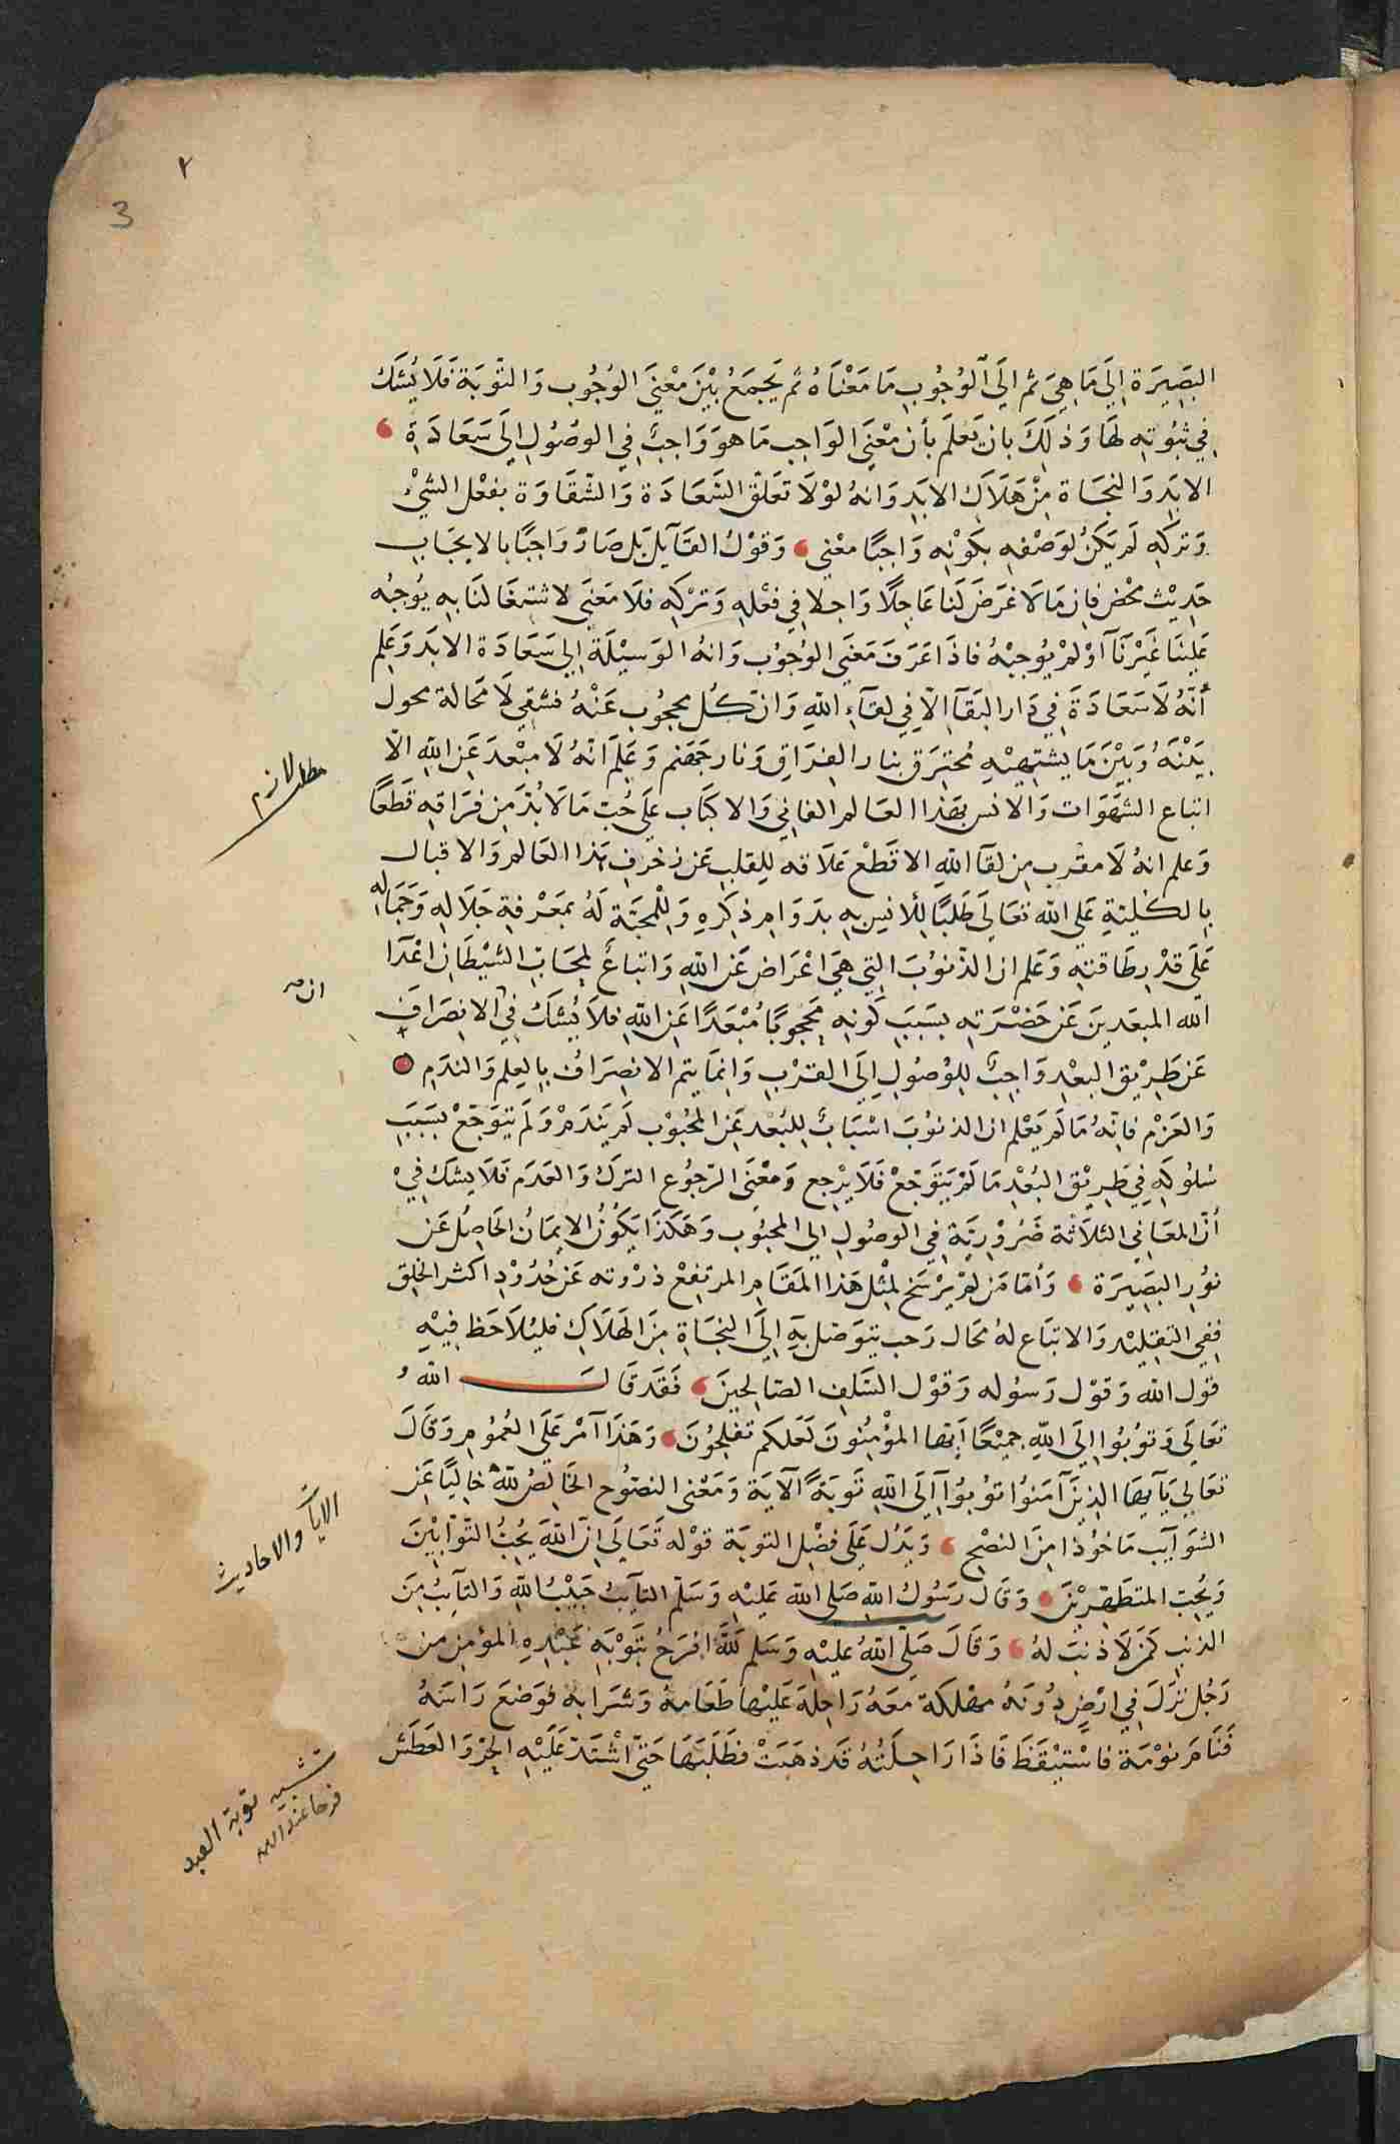 ٢
3
البَصِيرَة اِلَى مَا هِيَ ثم اِلَى الوُجُوبِ مَا مَعْنَاهُ ثم يَجمَعُ بيْنَ مَعْنيَ الوُجُوب وَالتّوبَة فَلَا يُشَك
فِي ثبُوته لهَا وَذلِكَ بان يَعْلمَ بأن مَعْنَي الوَاجب مَا هوَ وَاجبٌ فِي الوصُولِ اِلَى سَعَادَةِ
الابَدِ وَالنجَاة مِنْ هَلَاكِ الابَدِ وَانهُ لوْلَا تعَلق السَّعَادَة وَالشقَاوَة بفعْل الشيْ
وَتركهِ لم يَكنْ لوَصْفهِ بكَوْنهِ وَاجبًا معْني وَقوْل القآيل بَل صَارَ وَاجبًا بالايجَابِ
حَدِيث محْض فإن مَالَا غَرَضَ لنا عَاجلًا وَاجلا في فعْله وَتَرْكهِ فلَا مَعْنيَ لاشتغَالنَا به يُوجبُه
عَلينَا غَيْرُنَآ اوْلم يُوجبْهُ فاذَا عَرَفَ مَعْنيَ الوُجُوب وَانهُ الوَسيْلَة اِلى سَعَادَة الابَد وَعَلم
أنّهُ لَا سَعَادَةَ فِي دَار البَقَآ الَّا فِي لقَآءِ اللهِ وَان كُل محجُوبِ عَنْهُ فشقي لَا محَالة محول
بَيْنَهُ وَبيْنَ مَا يشتهيْهِ محْترَق بنار الفرَاقِ وَنار جَهنم وَعَلمَ انّهُ لَا مبْعدَ عَنِ اللهِ الّا
اتباع الشهَوَات وَالانس بهَذا العَالم الفاني وَالاكبَاب عَلى حُبّ مَالَا بُدّ مِن فرَاقهِ قَطعًا
وَعلم انهُ لَا مقرب مِن لقَا اللهِ الا قَطْع عَلَاقه لِلقلب عَن زخرف هَذا العَالم وَالاقبال
بالكليّةِ عَلى الله تعَالَى طَلبًا للأُنسِ به بدَوَامِ ذكرِهِ وَللْمحَبّة لَهُ بمَعْرفةِ جَلَالهِ وَجَمَاله
عَلَى قدْرِ طَاقتهِ وَعَلم ان الذنوُبَ التي هيَ اعْرَاض عَن اللهِ وَاتباعٌ لمحَابّ الشيْطَان اعْدَا
الله المبعَدِينَ عَن حَضْرَته بسَبَب كونهِ محجوبًا مُبْعَدًا عَن اللهِ فلَا يُشَك في الانصرَاف
عَن طَرِيْق البعْد وَاجبٌ لِلوُصُولِ اِلَى القرْبِ وَانمَا يتم الانصرَاف بالعِلم وَالندَمِ
وَالعَزم فانّهُ مَا لَم يَعْلم ان الذنوُبَ اسْبَابٌ لِلبُعْد عَن المحبُوْب لَم يَندَمْ وَلَم يتوَجّعْ بسَبَبِ
سُلوُكهِ فِي طَرِيْق البُعْدِ مَا لَمْ يَتوَجّعْ فَلَا يرْجع وَمعْنَى الرّجُوع الترك وَالعَدَم فَلَا يشك فِيْ
أنّ المعَاني الثلَاثة ضَرُوْرِيّة فِي الوصُول الى المحبُوب وَهَكَذَا يَكُوُنُ الايمَانُ الحاصِلُ عَن
نوُر البَصِيرَة وَأمّا مَن لمْ يرْسَخ لمثْل هَذا المَقَامِ المرتفعْ ذرْوته عَن حُدُوْدِ اكثر الخلق
ففي التقليْد وَالاتبَاع لهُ محَال رَحب يتوَصّل بهِ اِلَى النجَاةِ مِنَ الهَلَاك فليُلَاحَظ فِيْهِ
قول الله وَقوْل رَسُوله وَقوْل السّلف الصّالحِينَ فَقَد قَالَ اللهُ
تعَالَى وَتوُبُوا اِلَى اللهِ جميْعًا اَيّهَا المؤْمِنُونَ لَعَلكم تفْلحُونَ وَهَذَا آمْر عَلَى العُمُوْمِ وَقَالَ
تعَالِي يَآيهَا الذِينَ آمَنوُا توُبوُآ اِلَى اللهِ تَوبَةً الآيَة وَمَعْني النصُوُح الخالِصُ لله خالِيًا عَن
الشوَآيب مَاخُوْذا مِنَ النصْح وَيَدُل عَلَى فضْل التوبَة قوْله تَعَالَى اِنّ اللهَ يُحِبُّ التوّابيْنَ
وَيُحِبّ المتطَهّرِيْنَ وَقَال رَسُولُ اللهِ صَلى الله عَليْهِ وَسَلّم التآيبُ حَبيْبُ اللهِ وَالتآيبُ مِنَ
الذنبِ كمَن لَا ذنبَ لهُ وَقَالَ صَلّى اللهُ عَليْهِ وَسَلم لَلّهُ افرَحُ بتَوْبَةِ عَبْدِهِ المؤمِن من
رَجُل نزَلَ فِي ارْضٍ دَوّيّهُ مهْلكَة معَهُ رَاحِلَة عَليْهَا طَعَامهُ وَشرَابهُ فوَضعَ رَاسَهُ
فَنَامَ نوْمَة فاسْتيْقَظَ فَاذَا رَاحِلتُهُ قَد ذهَبَتْ فطَلَبَهَا حَتّى اشْتَدّ عَلَيْهِ الحرّ وَالعَطَش
ان صح
الآيات والاحاديث
تشبيه توبة العبد
فرحا عند الله